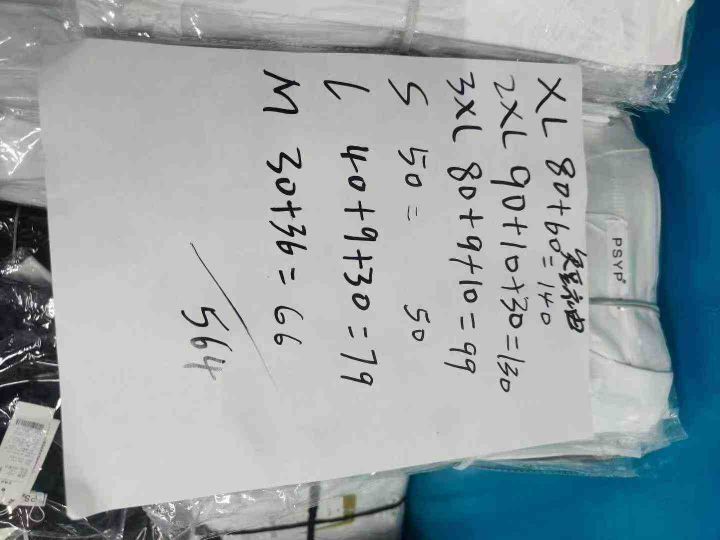 XL 80+60=140
2XL 90+10+30=130
3XL 80+9+10=99
S 50= 50
L 40+9+30=79
M 30+36=66
564
PSYP